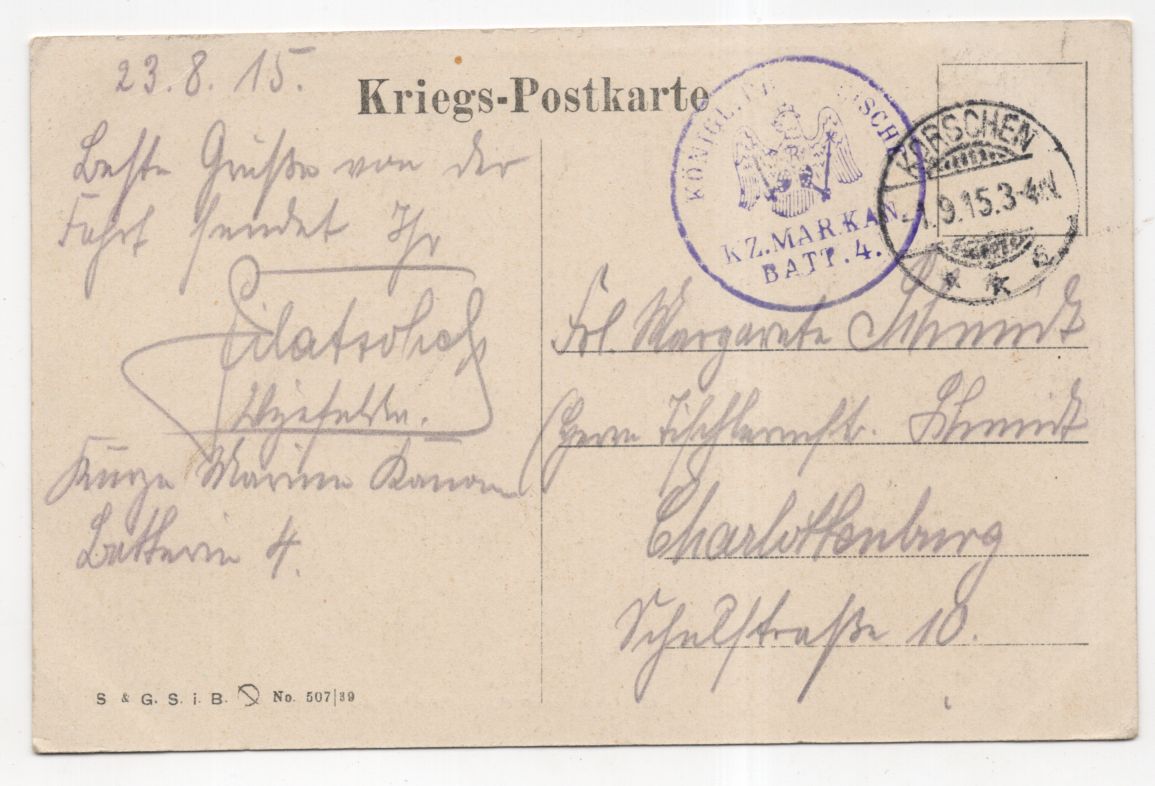 23.8.15.
Kriegs-Postkarte
Beste Grüße von der
Fahrt sendet Ihr
Kurze Marine Kanonen
Batterie 4.
KÖNIGL. PR ISCHE
KZ.MAR.KAN.
BATT. 4.
KORSCHEN
1.9.15.3-4N.
* *
Frl. Margarete Schmidt
Herrn Tischlermstr. Schmidt
Charlottenburg
Schulstraße 10.
S & G. S. i. B. No. 507|39